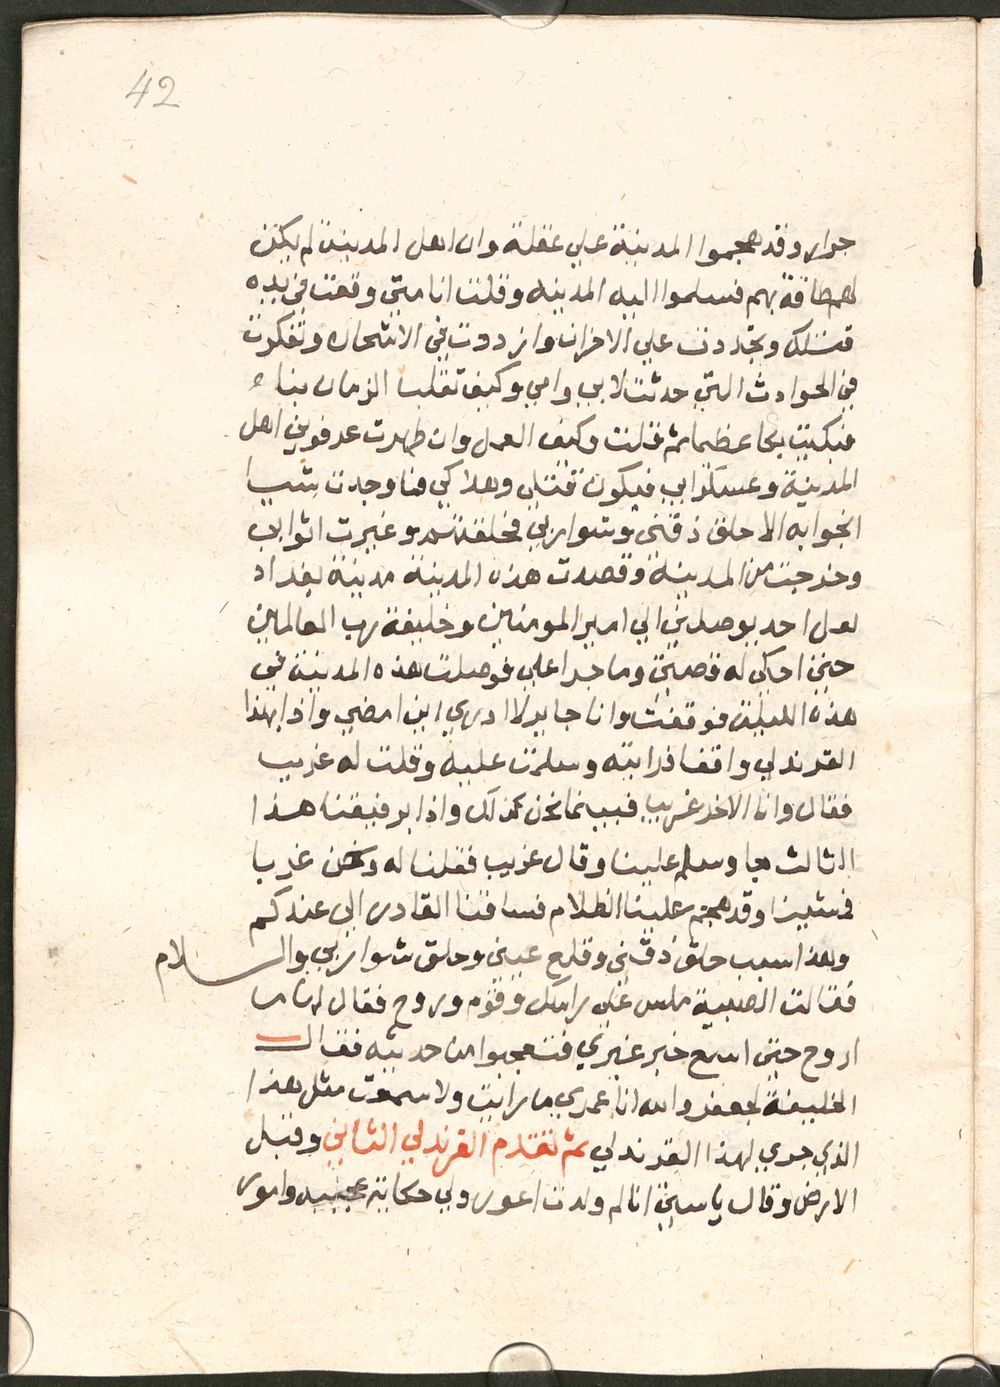 42
جرار وقد هجموا المدينة علي غفلة وان اهل المدينة لم يكن
لهم طاقة بهم فسلموا اليه المدينه وقلت انا متي وقعت في يده
قتلك وتجددت علي الاحزان وازددت في الاشجان وتفكرت
في الحوادث التي حدثت لابي وامي وكيف تقلب الزمان بنا
فبكيت بكا عظيما ثم قلت وكيف العمل وان ظهرت عرفوني اهل
المدينة وعسكر ابي فيكون قتلي وهلاكي فما وجدت شيا
انجوا به الا حلق ذقني وشواربي فحلقتهم وغيرت اثوابي
وخرجت من المدينة وقصدت هذه المدينة مدينة بغداد
لعل احد يوصلني الي امير المومنين وخليفة رب العالمين
حتي احكي له قصتي وما جرا علي فوصلت هذه المدينة في
هذه الليلة فوقفت وانا حاير لا ادري اين امضي واذا بهذا
القرندلي واقفا فرايته وسلمت عليه وقلت له غريب
فقال وانا الاخر غريب فبينما نحن كذلك واذا برفيقنا هذا
الثالث جا وسلم علينا وقال غريب فقلنا له ونحن غربا
فمشينا وقد هجم علينا الظلام فساقتنا القادر الي عندكم
وهذا سبب حلق ذقني وقلع عيني وحلق شواربي والسلام
فقالت الصبية ملس علي راسك وقوم وروح فقال لها ما
اروح حتي اسمع خبر غيري فتعجبوا من حديثه فقال
الخليفة لجعفر والله انا عمري ما رايت ولا سمعت مثل هذا
الذي جري لهذا القرندلي ثم تقدم القرندلي الثاني وقبل
الارض وقال يا ستي انا لم ولدت اعور ولي حكاية عجيبه وامور